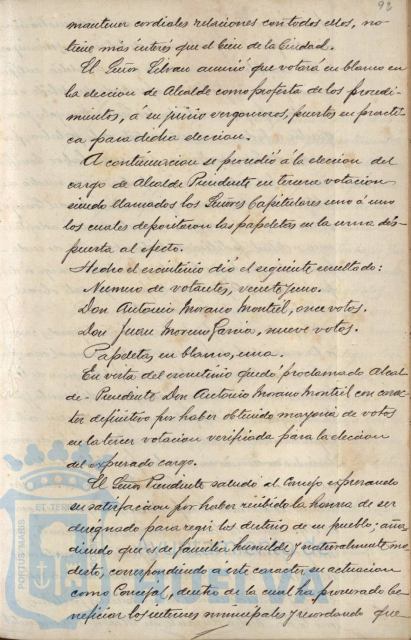 92
mantener cordiales relaciones con todos ellos, no
tiene más interés que el bien de la Ciudad.
El Señor anunció que votará en blanco en
la eleccion de Alcalde como protesta de los procedi-
mientos, á su juicio vergonzosos, puestos en practi-
ca para dicha eleccion.
A continuacion se procedió á la eleccion del
cargo de Alcalde Presidente en tercera votacion
siendo llamados los Señores Capitulares uno á uno
los cuales depositaron las papeletas en la urna dis-
puesta al efecto.
Hecho el escrutinio dió el siguiente resultado:
Numero de votantes, veinte y uno.
Don Antonio Morano Montiel, once votos.
Don Juan Moreno Garcia, nueve votos.
Papeletas en blanco, una.
En vista del escrutinio quedó proclamado Alcal-
de-Presidente Don Antonio Morano Montiel con carac-
ter definitivo por haber obtenido mayoria de votos
en la tercer votacion verificada para la eleccion
del expresado cargo.
El Señor Presidente saludó al Concejo expresando
su satisfaccion por haber recibido la honra de ser
designado para regir los destinos de su pueblo; aña-
diendo que es de familia humilde y naturalmente mo-
desto, correspondiendo á este caracter su actuacion
como Concejal, dentro de la cual ha procurado be-
neficiar los intereses municipales y recordando que
PORTUS MARIS
ET TERRAE
HUELVA